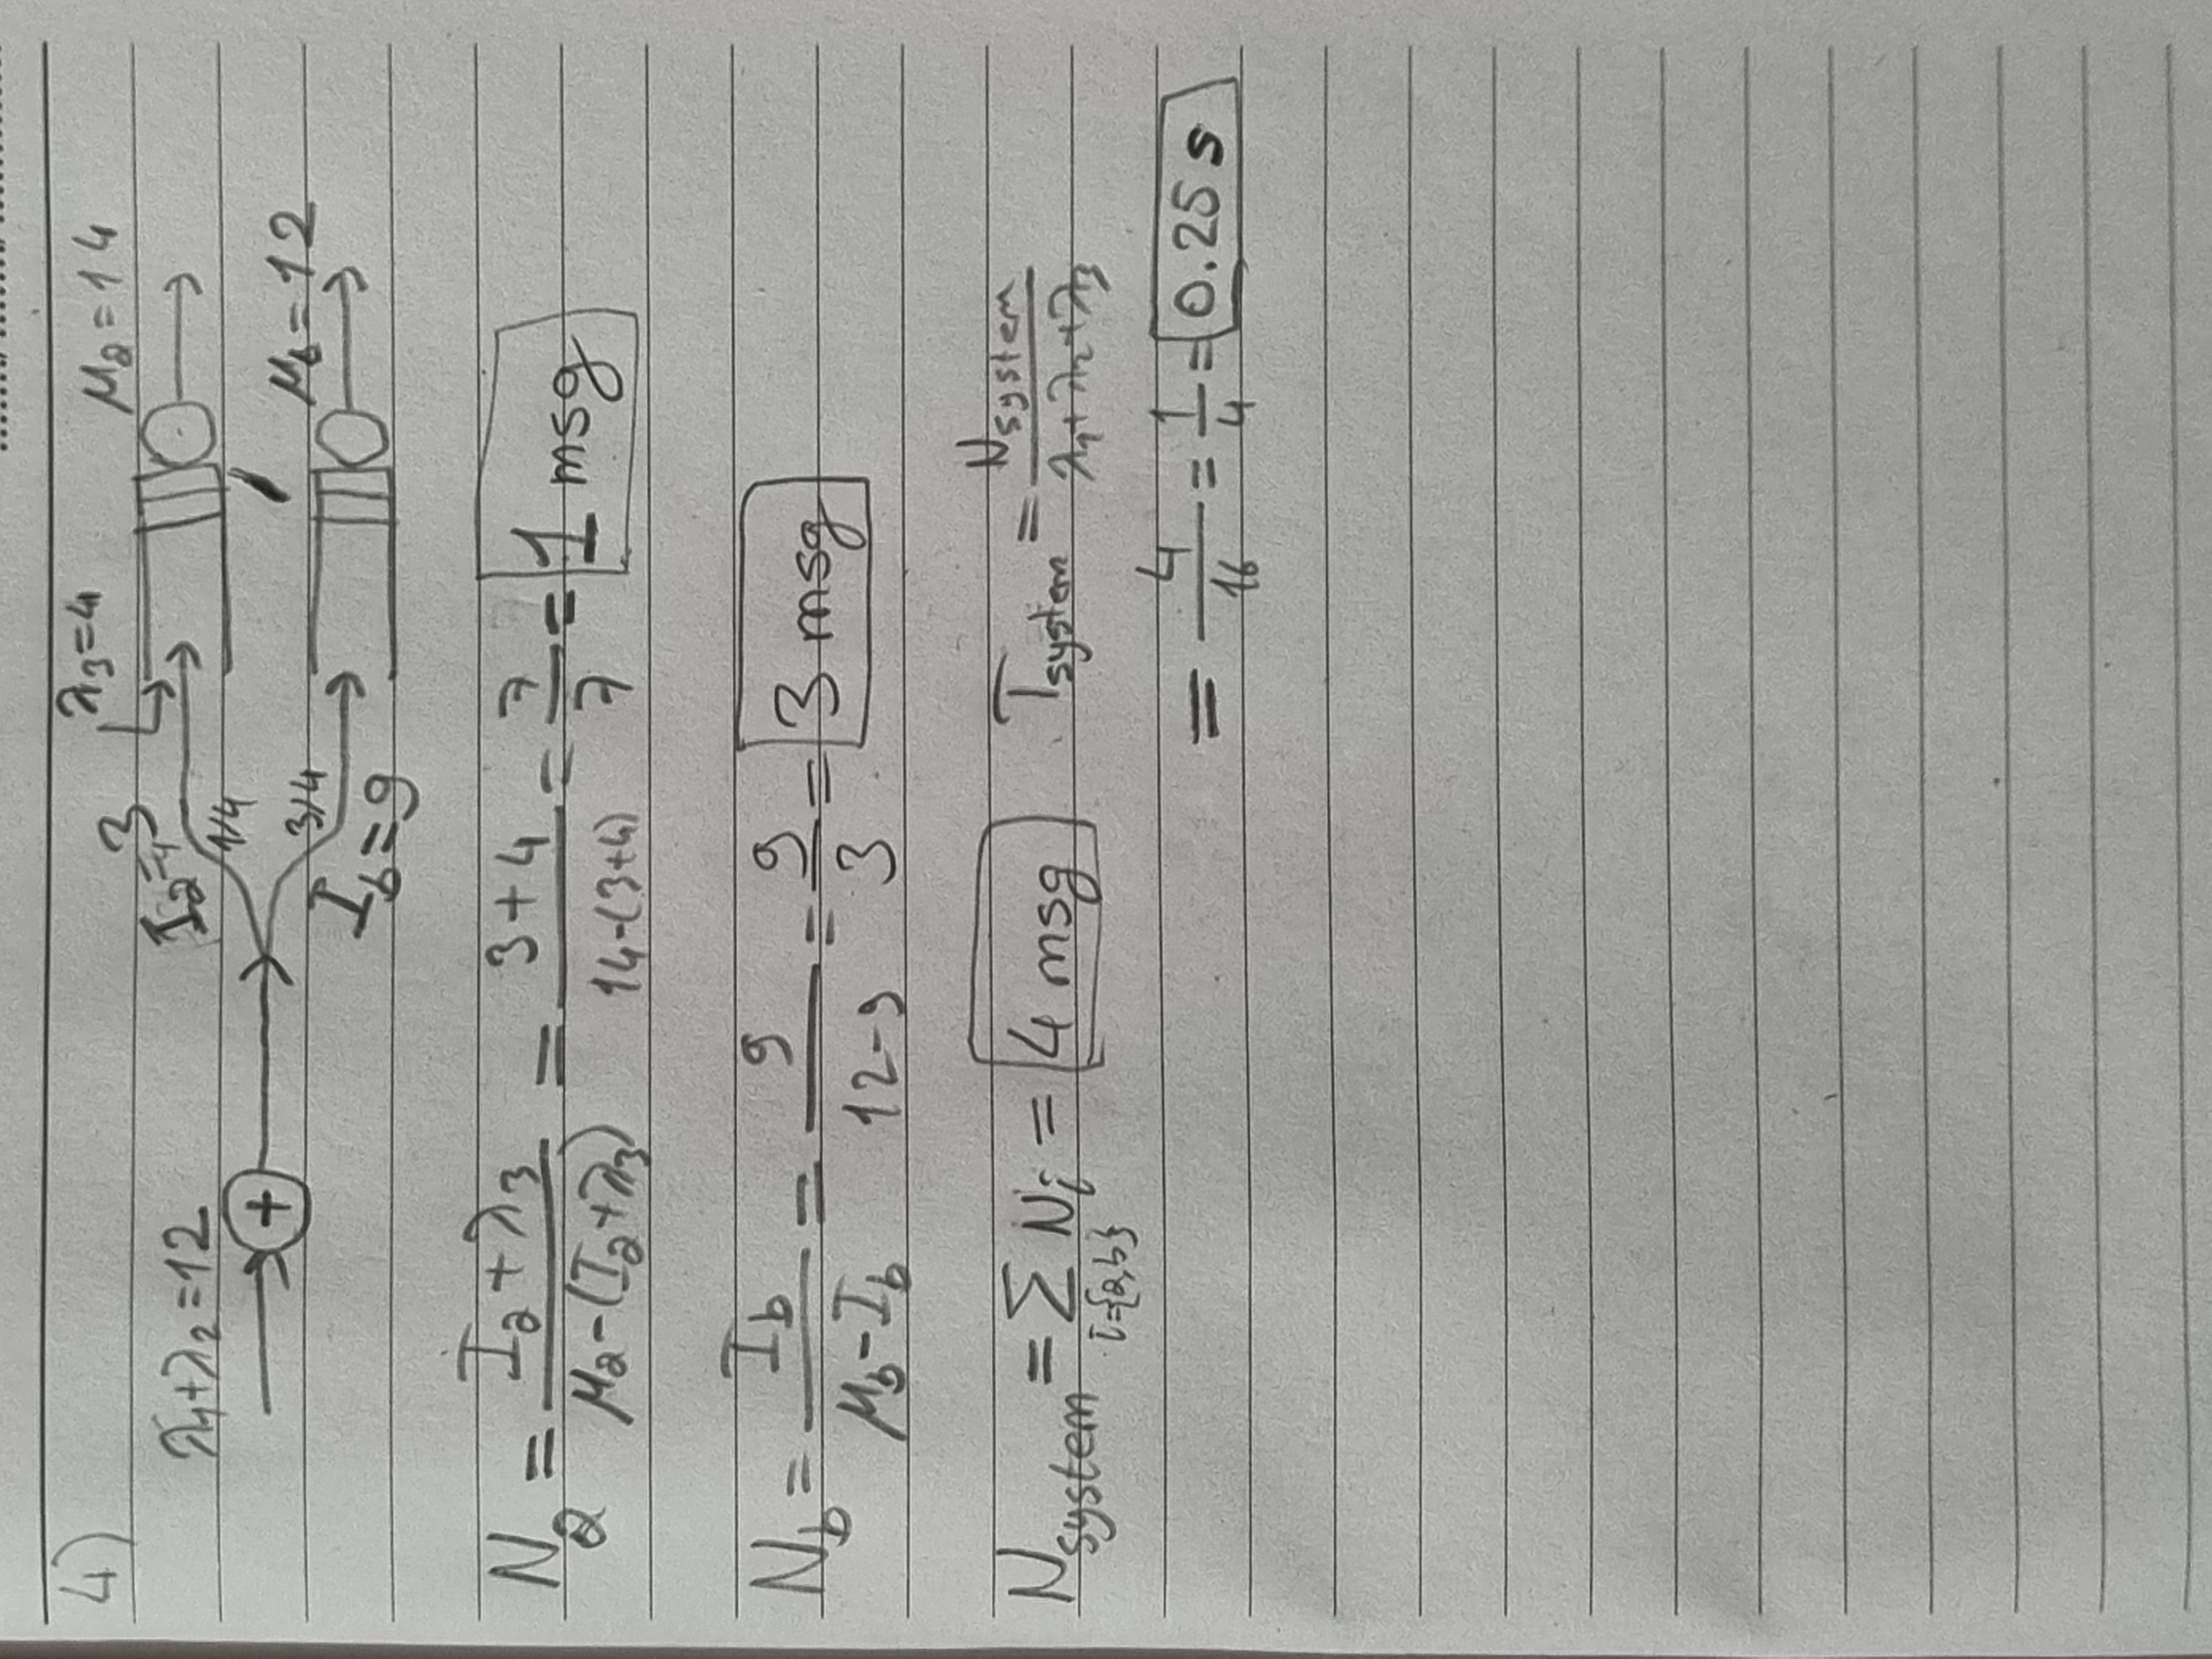 4)
λ₃=4
μₐ=14
Iₐ=3
λ₁+λ₂=12
1/4
+
3/4
μ_b=12
I_b=9
Nₐ = (Iₐ+λ₃)/(μₐ-(Iₐ+λ₃)) = (3+4)/(14-(3+4)) = 7/7 = 1 msg
N_b = I_b/(μ_b-I_b) = 9/(12-9) = 9/3 = 3 msg
N_system = Σ_{i={a,b}} N_i = 4 msg T_system = N_system/(λ₁+λ₂+λ₃)
= 4/16 = 1/4 = 0.25 s